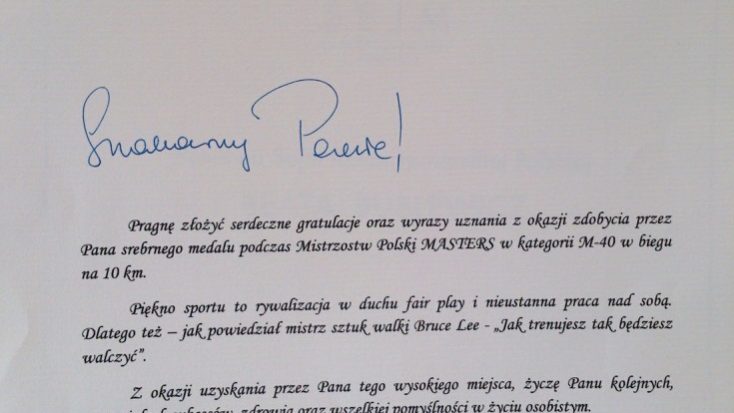 Szanowny Panie!
Pragnę złożyć serdeczne gratulacje oraz wyrazy uznania z okazji zdobycia przez
Pana srebrnego medalu podczas Mistrzostw Polski MASTERS w kategorii M-40 w biegu
na 10 km.
Piękno sportu to rywalizacja w duchu fair play i nieustanna praca nad sobą.
Dlatego też – jak powiedział mistrz sztuk walki Bruce Lee - „Jak trenujesz tak będziesz
walczyć”.
Z okazji uzyskania przez Pana tego wysokiego miejsca, życzę Panu kolejnych,
sukcesów, zdrowia oraz wszelkiej pomyślności w życiu osobistym.